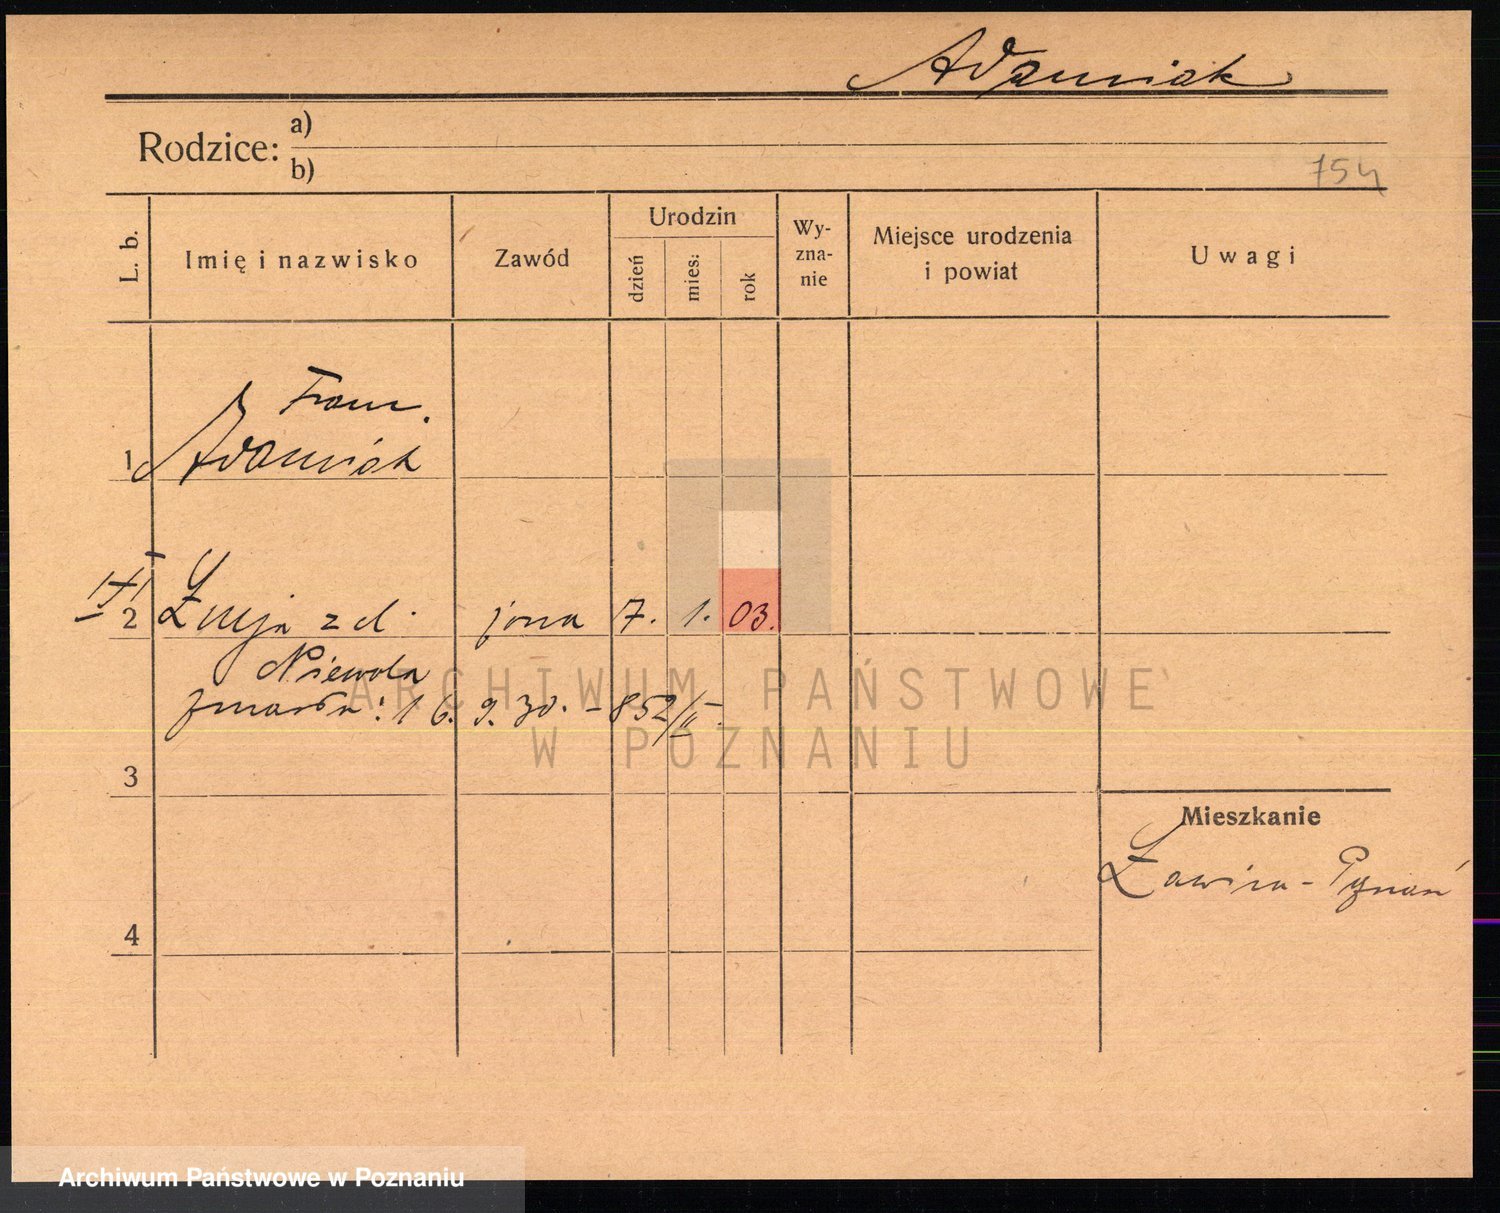 Adamiak
Rodzice: a)
b)
754
L. b.
Imię i nazwisko
Zawód
Urodzin
dzień
mies:
rok
Wy-
zna-
nie
Miejsce urodzenia
i powiat
Uwagi
Franc.
1 Adamiak
2 z d. żona 7. 1. 03.
Niewola
zmarła: 16. 9. 30. - 852/II
3
Mieszkanie
Ławica - Poznań
4
ARCHIWUM PAŃSTWOWE
W POZNANIU
Archiwum Państwowe w Poznaniu